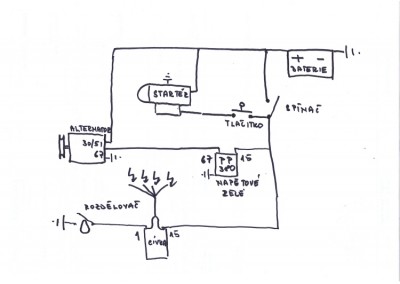 + -
BATERIE
STARTÉR
SPÍNAČ
TLAČÍTKO
ALTERNÁTOR
30/51
67
67
15
NAPĚŤOVÉ
RELÉ
ROZDĚLOVAČ
1
15
CÍVKA